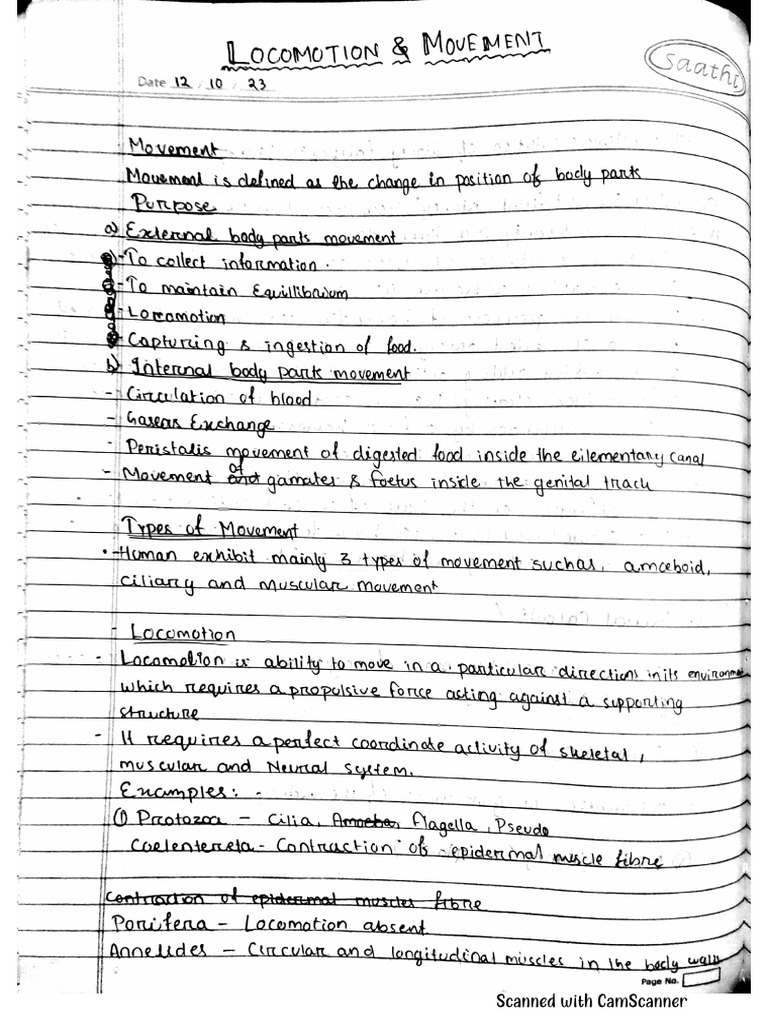 LOCOMOTION & MOVEMENT
Saathi
Date 12 / 10 / 23
Movement
Movement is defined as the change in position of body parts
Purpose
a) External body parts movement
- To collect information.
- To maintain Equillibrium
- Locomotion
- Capturing & ingestion of food.
b) Internal body parts movement
- Circulation of blood
- Gaseous Exchange
- Peristalis movement of digested food inside the eilementary canal
- Movement of gamates & foetus inside the genital track
Types of Movement
• - Human exhibit mainly 3 types of movement suchas, amoeboid,
ciliary and Muscular Movement
- Locomotion
- Locomotion is ability to move in a particular directions in its environment
which requires a propulsive force acting against a supporting
structure
- It requires a perfect coordinate activity of skeletal,
muscular and Neural system.
Examples: -
① Protozoa - Cilia, Amoeba, Flagella, Pseudo
Coelentereta - Contraction of epidermal muscle fibre
contraction of epidermal muscles fibre
Porifera - Locomotion absent
Annelides - Circular and longitudinal muscles in the body wall
Page No.
Scanned with CamScanner